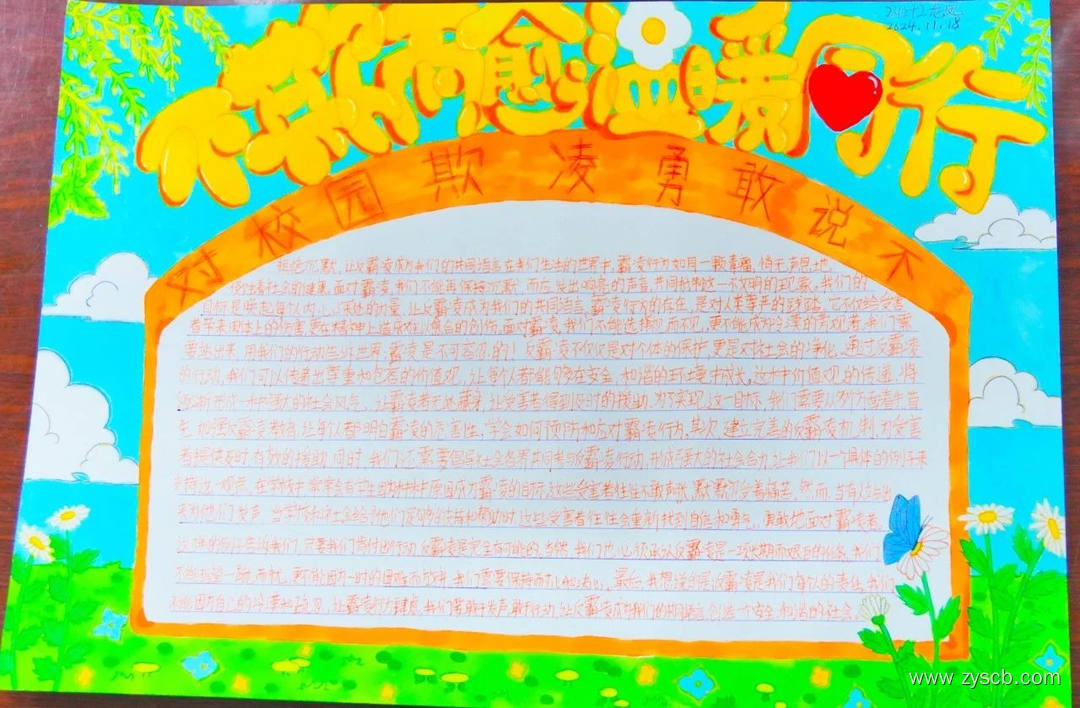 不欺而愈 温暖同行
2024.11.18
对校园欺凌勇敢说不
拒绝沉默,让反霸凌成为我们的共同语言在我们生活的世界中,霸凌行为如同一颗毒瘤,悄无声息地
侵蚀着社会的健康。面对霸凌,我们不能再保持沉默,而应发出响亮的声音,共同抵制这一不文明的现象。我们的
目标是唤起每个人内心深处的力量,让反霸凌成为我们的共同语言。霸凌行为的存在,是对人类尊严的践踏。它不仅给受害
者带来肉体上的伤害,更在精神上造成难以愈合的创伤。面对霸凌,我们不能选择视而不见,更不能成为冷漠的旁观者。我们需
要站出来,用我们的行动告诉世界:霸凌是不可容忍的!反霸凌不仅仅是对个体的保护,更是对社会的净化。通过反霸凌
的行动,我们可以传递出尊重和包容的价值观,让每个人都能够在安全、和谐的环境中成长。这种价值观的传递,将
逐渐形成一种强大的社会风气,让霸凌者无处藏身,让受害者得到及时的援助。为了实现这一目标,我们需要从多方面着手首
先,加强反霸凌教育,让每个人都明白霸凌的危害性,学会如何预防和应对霸凌行为。其次,建立完善的反霸凌机制,为受害
者提供及时有效的援助。同时,我们还需要倡导社会各界共同参与反霸凌行动,形成强大的社会合力。让我们以一个具体的例子来
支持这一观点。在学校中,常常会有学生因为种种原因成为霸凌的目标。这些受害者往往不敢声张,默默忍受着痛苦。然而,当有人站出
来为他们发声,当学校和社会给予他们足够的支持和帮助时,这些受害者往往会重新找到自信和勇气,勇敢地面对霸凌者。
这样的例子告诉我们,只要我们肯付出行动,反霸凌是完全有可能的。当然,我们也必须承认,反霸凌是一项长期而艰巨的任务。我们
不能指望一蹴而就,更不能因为一时的困难而放弃。我们需要保持耐心和决心。最后,我想说的是,反霸凌是我们每个人的责任。我们
不能因为自己的冷漠和无视,让霸凌行为肆虐。我们要敢于发声,敢于行动,让反霸凌成为我们的共同语言,创造一个安全、和谐的社会。
www.zyscb.com